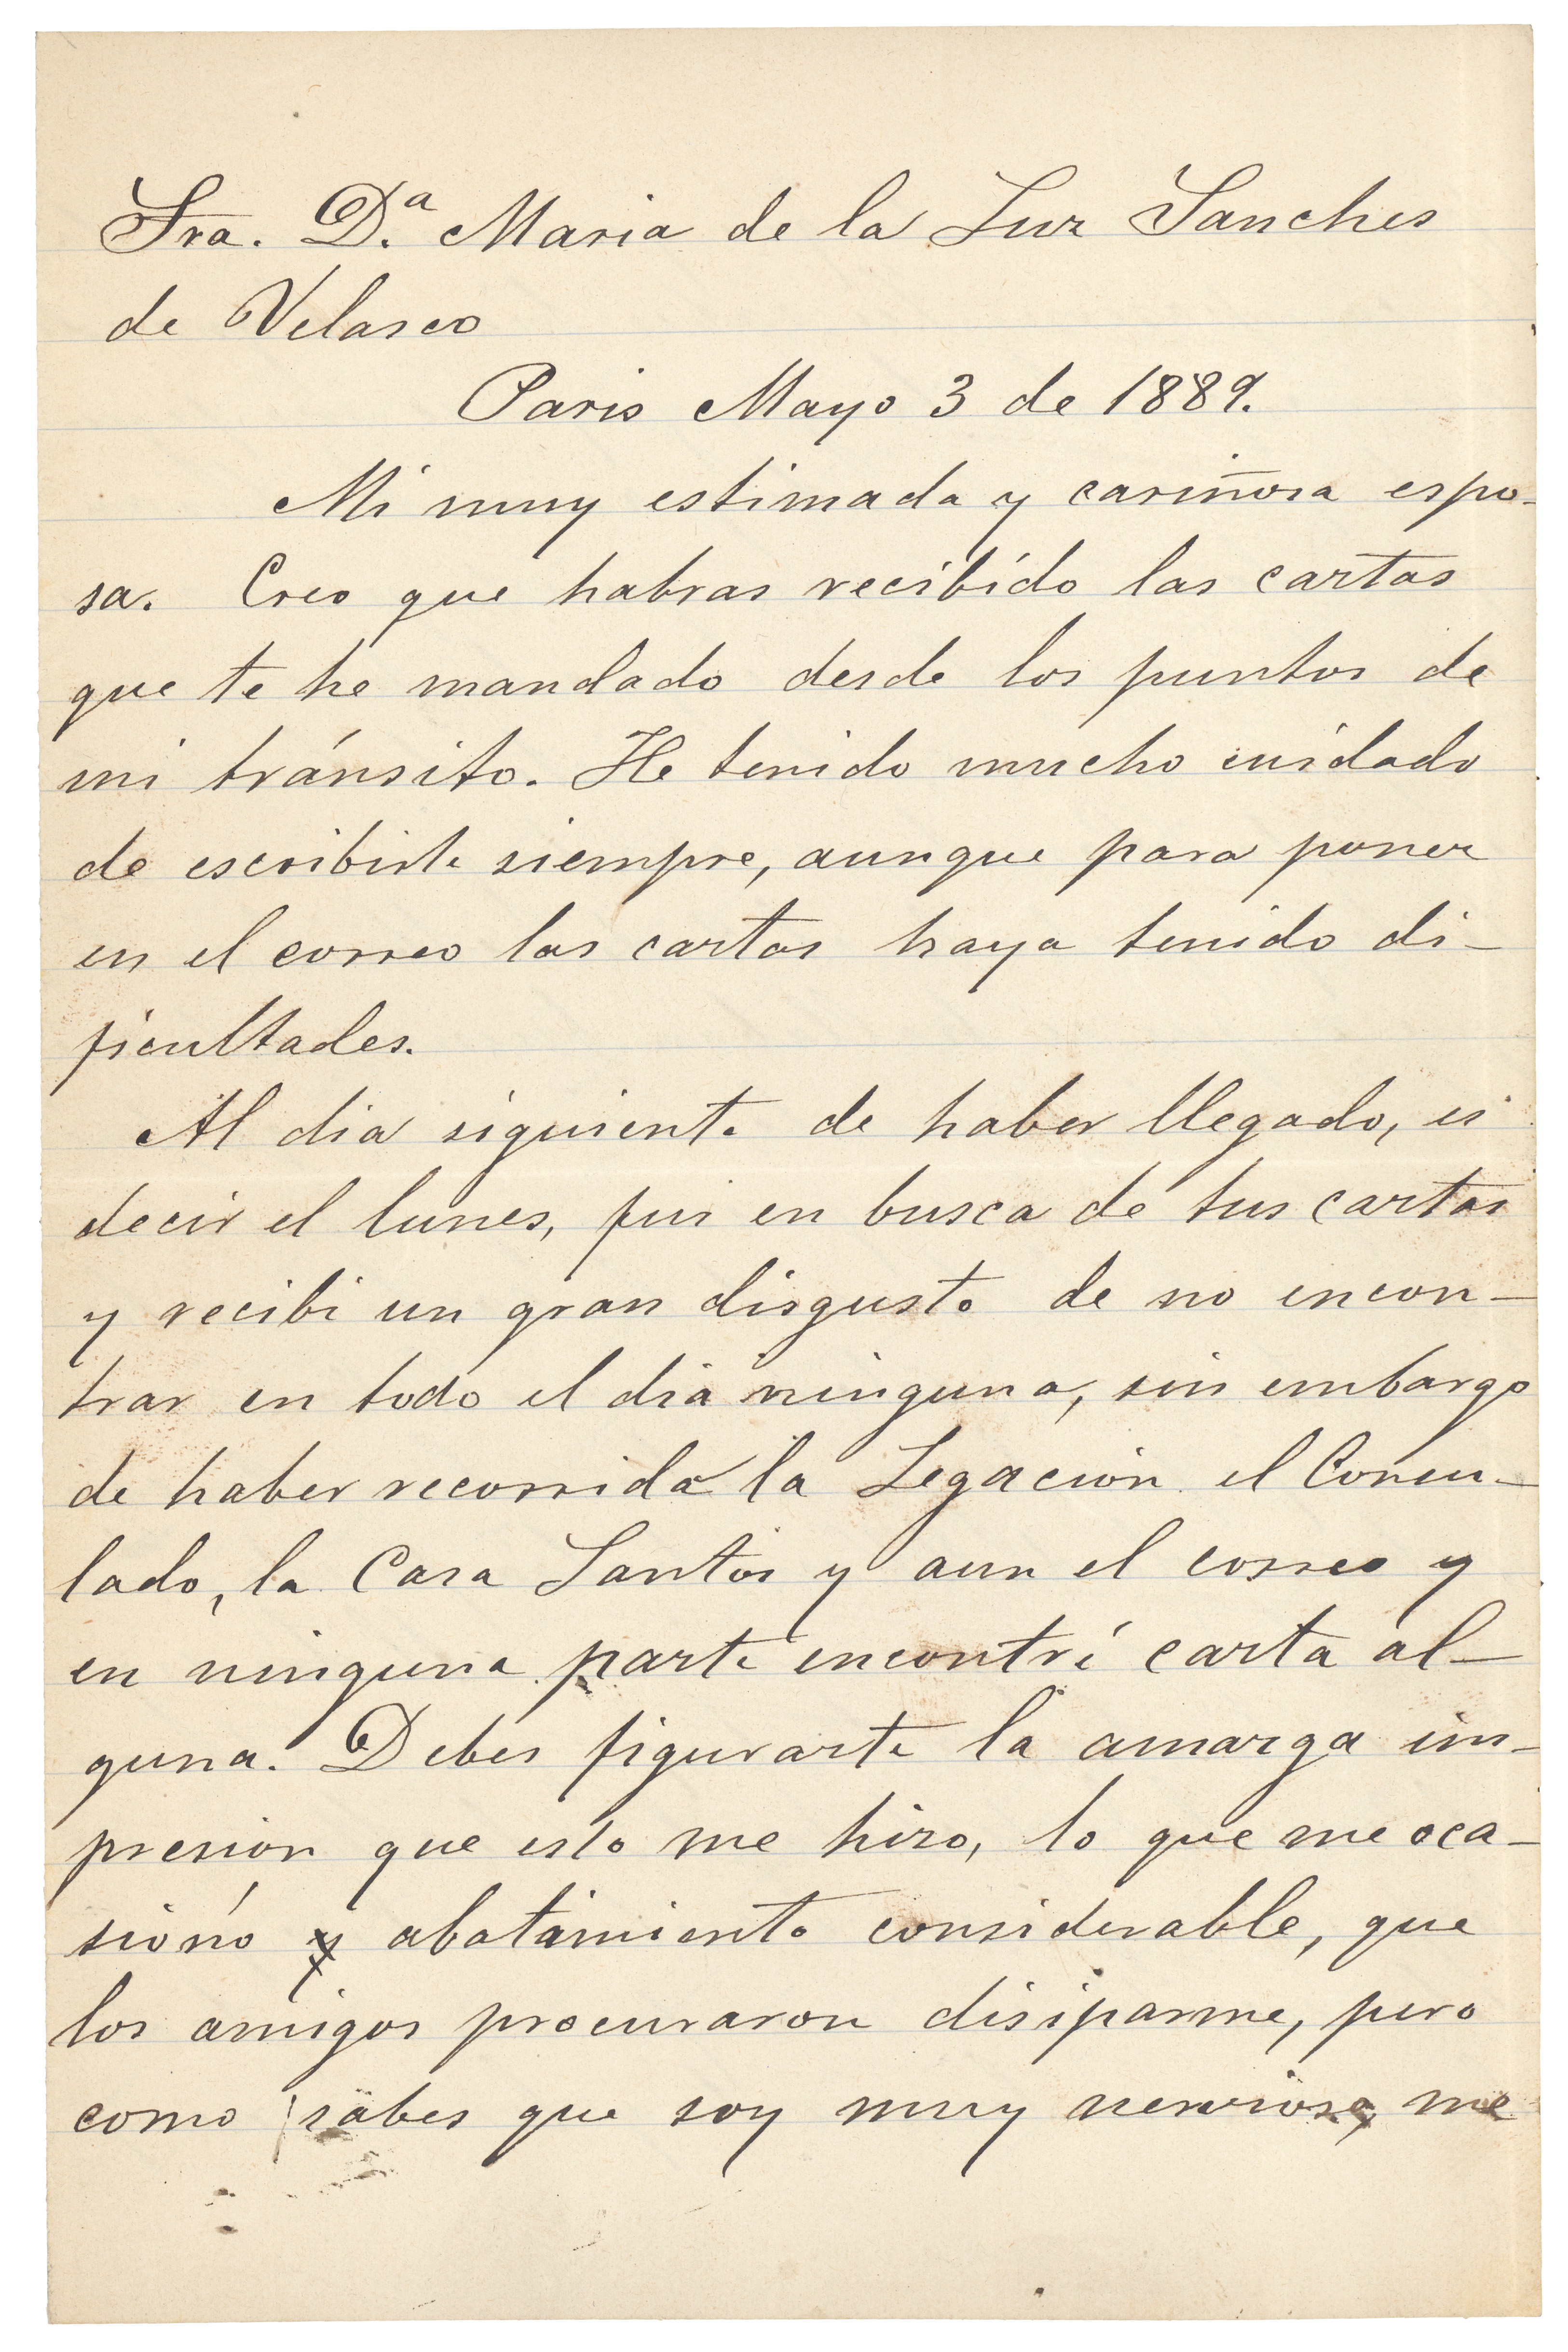 Sra. D.ª Maria de la Luz Sanches
de Velasco
Paris Mayo 3 de 1889.
Mi muy estimada y cariñosa espo-
sa. Creo que habras recibido las cartas
que te he mandado desde los puntos de
mi tránsito. He tenido mucho cuidado
de escribirte siempre, aunque para poner
en el correo las cartas haya tenido di-
ficultades.
Al dia siguiente de haber llegado, es
decir el lunes, fui en busca de tus cartas
y recibi un gran disgusto de no encon-
trar en todo el dia ninguna, sin embargo
de haber recorrido la Legacion el Consu-
lado, la Casa Santos y aun el correo y
en ninguna parte encontré carta al-
guna. Debes figurarte la amarga im-
presion que esto me hizo, lo que me oca-
sionó y abatimiento considerable, que
los amigos procuraron disiparme, pero
como sabes que soy muy nervioso, me